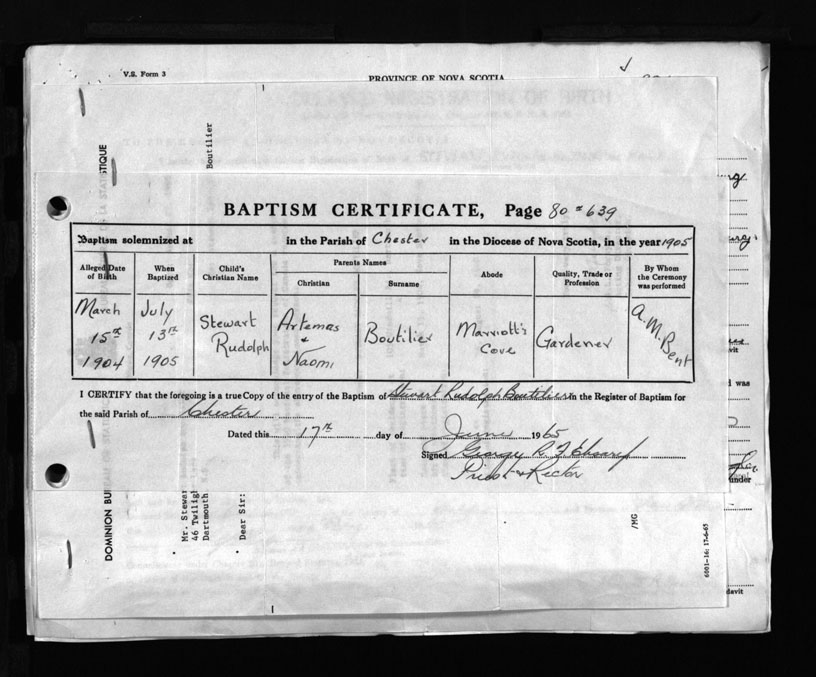 V.S. Form 3
PROVINCE OF NOVA SCOTIA
Boutilier
BAPTISM CERTIFICATE, Page 80 # 639
Baptism solemnized at in the Parish of Chester in the Diocese of Nova Scotia, in the year 1905
Alleged Date of Birth
When Baptized
Child's Christian Name
Parents Names
Christian
Surname
Abode
Quality, Trade or Profession
By Whom the Ceremony was performed
March 15th 1904
July 13th 1905
Stewart Rudolph
Artemas + Naomi
Boutilier
Marriott's Cove
Gardener
A. M. Bent
I CERTIFY that the foregoing is a true Copy of the entry of the Baptism of Stewart Rudolph Boutilier in the Register of Baptism for
the said Parish of Chester
Dated this 17th day of June 1965
Signed George R.
Priest & Rector
DOMINION BU
Mr. Stewar
46 Twiligh
Dartmouth
Dear Sir:
/MG
6001-16: 17-6-65
under
davit